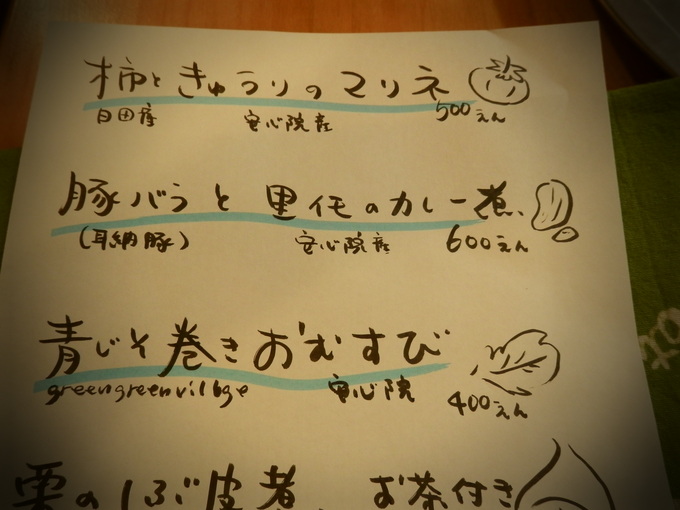 柿ときゅうりのマリネ
日田産 安心院産 500えん
豚バラと里イモのカレー煮、
(耳納豚) 安心院産 600えん
青じそ巻きおむすび
greengreenvillage 安心院 400えん
栗のしぶ皮煮、お茶付き